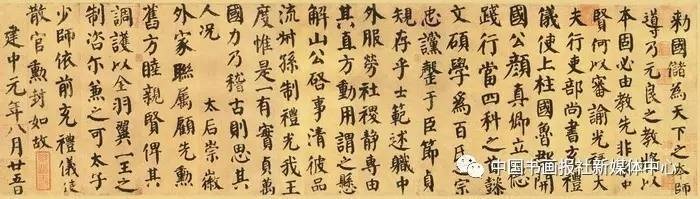 勑國儲為天下之本師
導乃元良之教將以
本固必由教先非求忠
賢何以審諭光祿大
夫行吏部尚書充禮
儀使上柱國魯郡開
國公顏真卿立德
踐行當四科之首懿
文碩學為百氏之宗
忠讜罄于臣節貞
規存乎士範述軄中
外服勞社稷靜專由
其直方動用謂之懸
解山公啓事清彼品
流叔孫制禮光我王
度惟是一有實貞萬
國力乃稽古則思其
人況 太后崇徽
外家聯屬顧先勲
舊方睦親賢俾其
調護以全羽翼一王之
制咨尔兼之可太子
少師依前充禮儀使
散官勲封如故
建中元年八月廿五日
中国书画报社新媒体中心